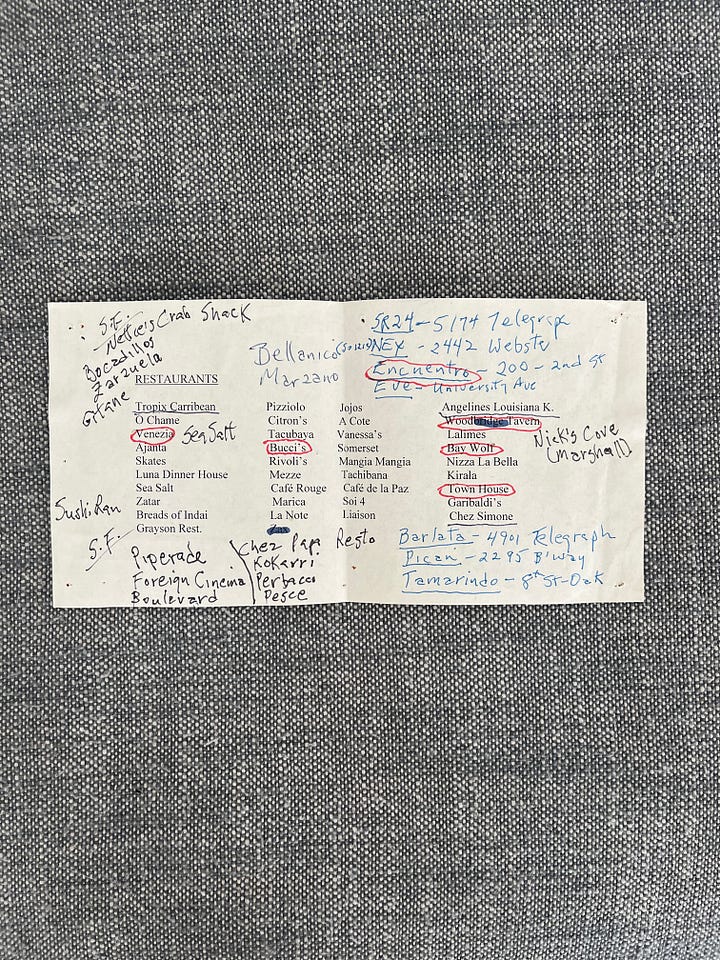 S.F.
Nettie's Crab Shack
Bocadillos
Zarzuela
Gitane
Bellanico
Marzano
SR24 - 5174 Telegraph
NEX - 2442 Webster
Encuentro - 200 - 2nd St
Eve - University Ave
RESTAURANTS
Tropix Carribean
O Chame
Venezia Sea Salt
Ajanta
Skates
Luna Dinner House
Sea Salt
Zatar
Breads of Indai
Grayson Rest.
Pizziolo
Citron's
Tacubaya
Bucci's
Rivoli's
Mezze
Café Rouge
Marica
La Note
Zax
Jojos
A Cote
Vanessa's
Somerset
Mangia Mangia
Tachibana
Café de la Paz
Soi 4
Liaison
Angelines Louisiana K.
Woodbridge Tavern
Lalimes
Bay Wolf
Nizza La Bella
Kirala
Town House
Garibaldi's
Chez Simone
Nick's Cove
(Marshall)
Sushi Ran
S.F.
Piperade
Foreign Cinema
Boulevard
Chez Papa Resto
Kokarri
Perbacco
Pesce
Barlata - 4901 Telegraph
Pican - 2295 B'way
Tamarindo - 8th St - Oak